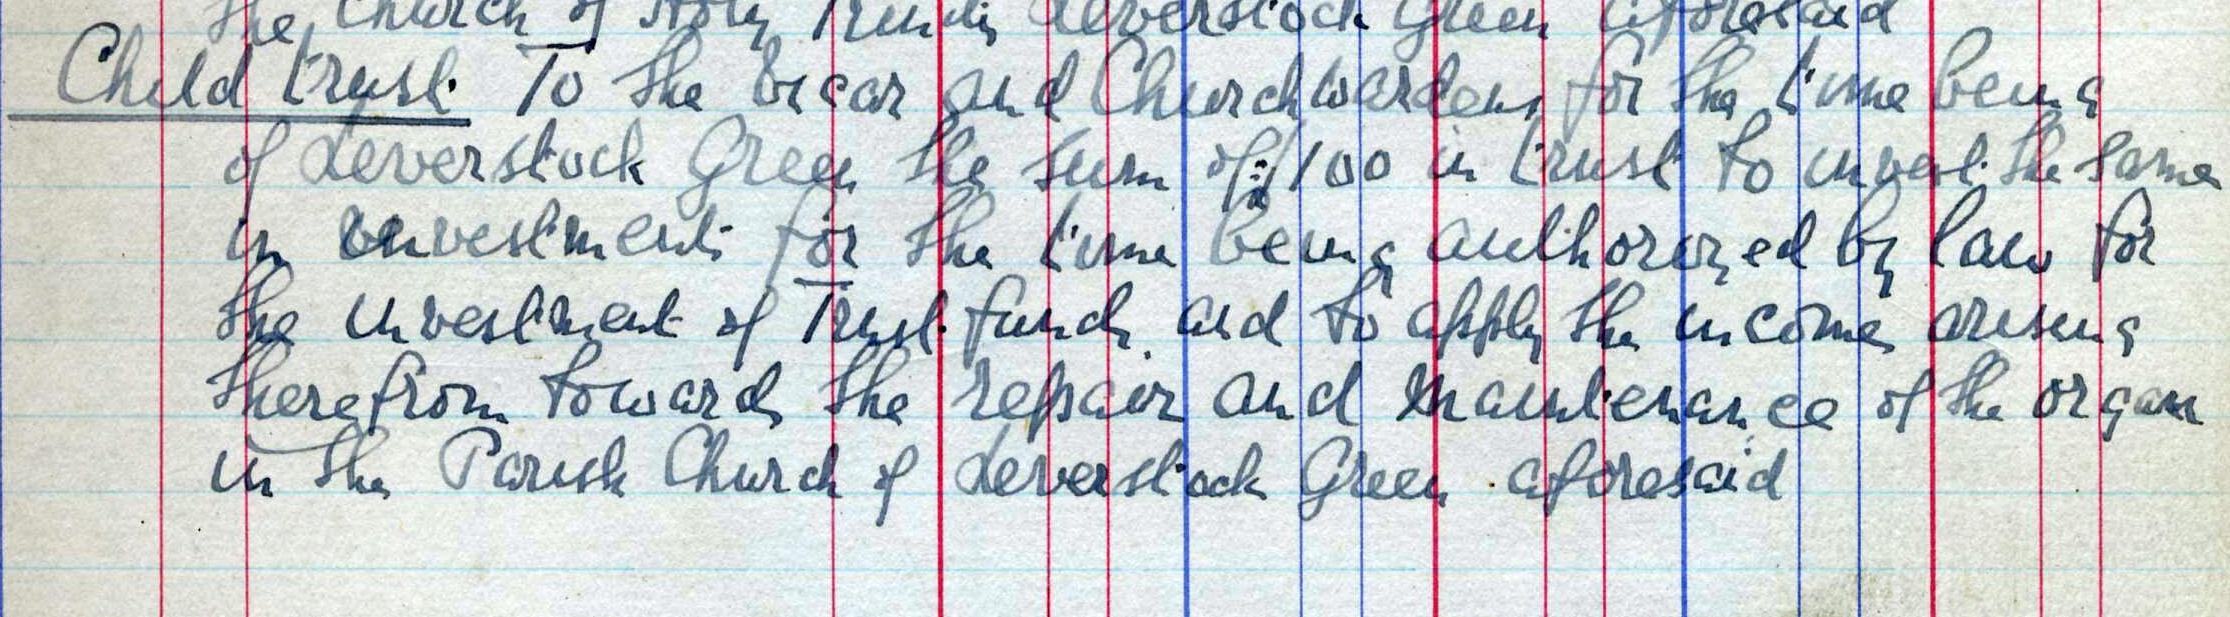 the Church of Holy Trinity Leverstock Green aforesaid
Child trust. To the vicar and Churchwardens for the time being
of Leverstock Green the sum of £100 in trust to invest the same
in investments for the time being authorized by law for
the investment of Trust funds and to apply the income arising
therefrom towards the repair and maintenance of the organ
in the Parish Church of Leverstock Green aforesaid